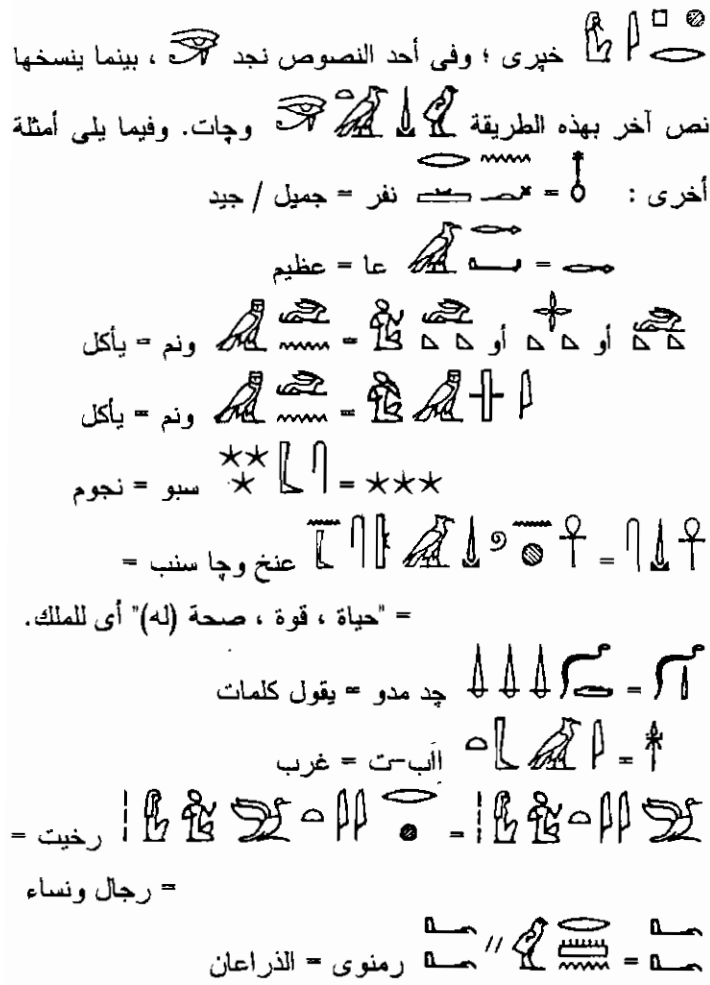 خپرى ؛ وفى أحد النصوص نجد ، بينما ينسخها
نص آخر بهذه الطريقة وچات. وفيما يلى أمثلة
أخرى : = نفر = جميل / جيد
= عا = عظيم
أو أو = ونم = يأكل
= ونم = يأكل
= سبو = نجوم
= عنخ وچا سنب =
= "حياة ، قوة ، صحة (له)" أى للملك.
= چد مدو = يقول كلمات
= اآب-ت = غرب
= رخيت =
= رجال ونساء
= رمنوى = الذراعان